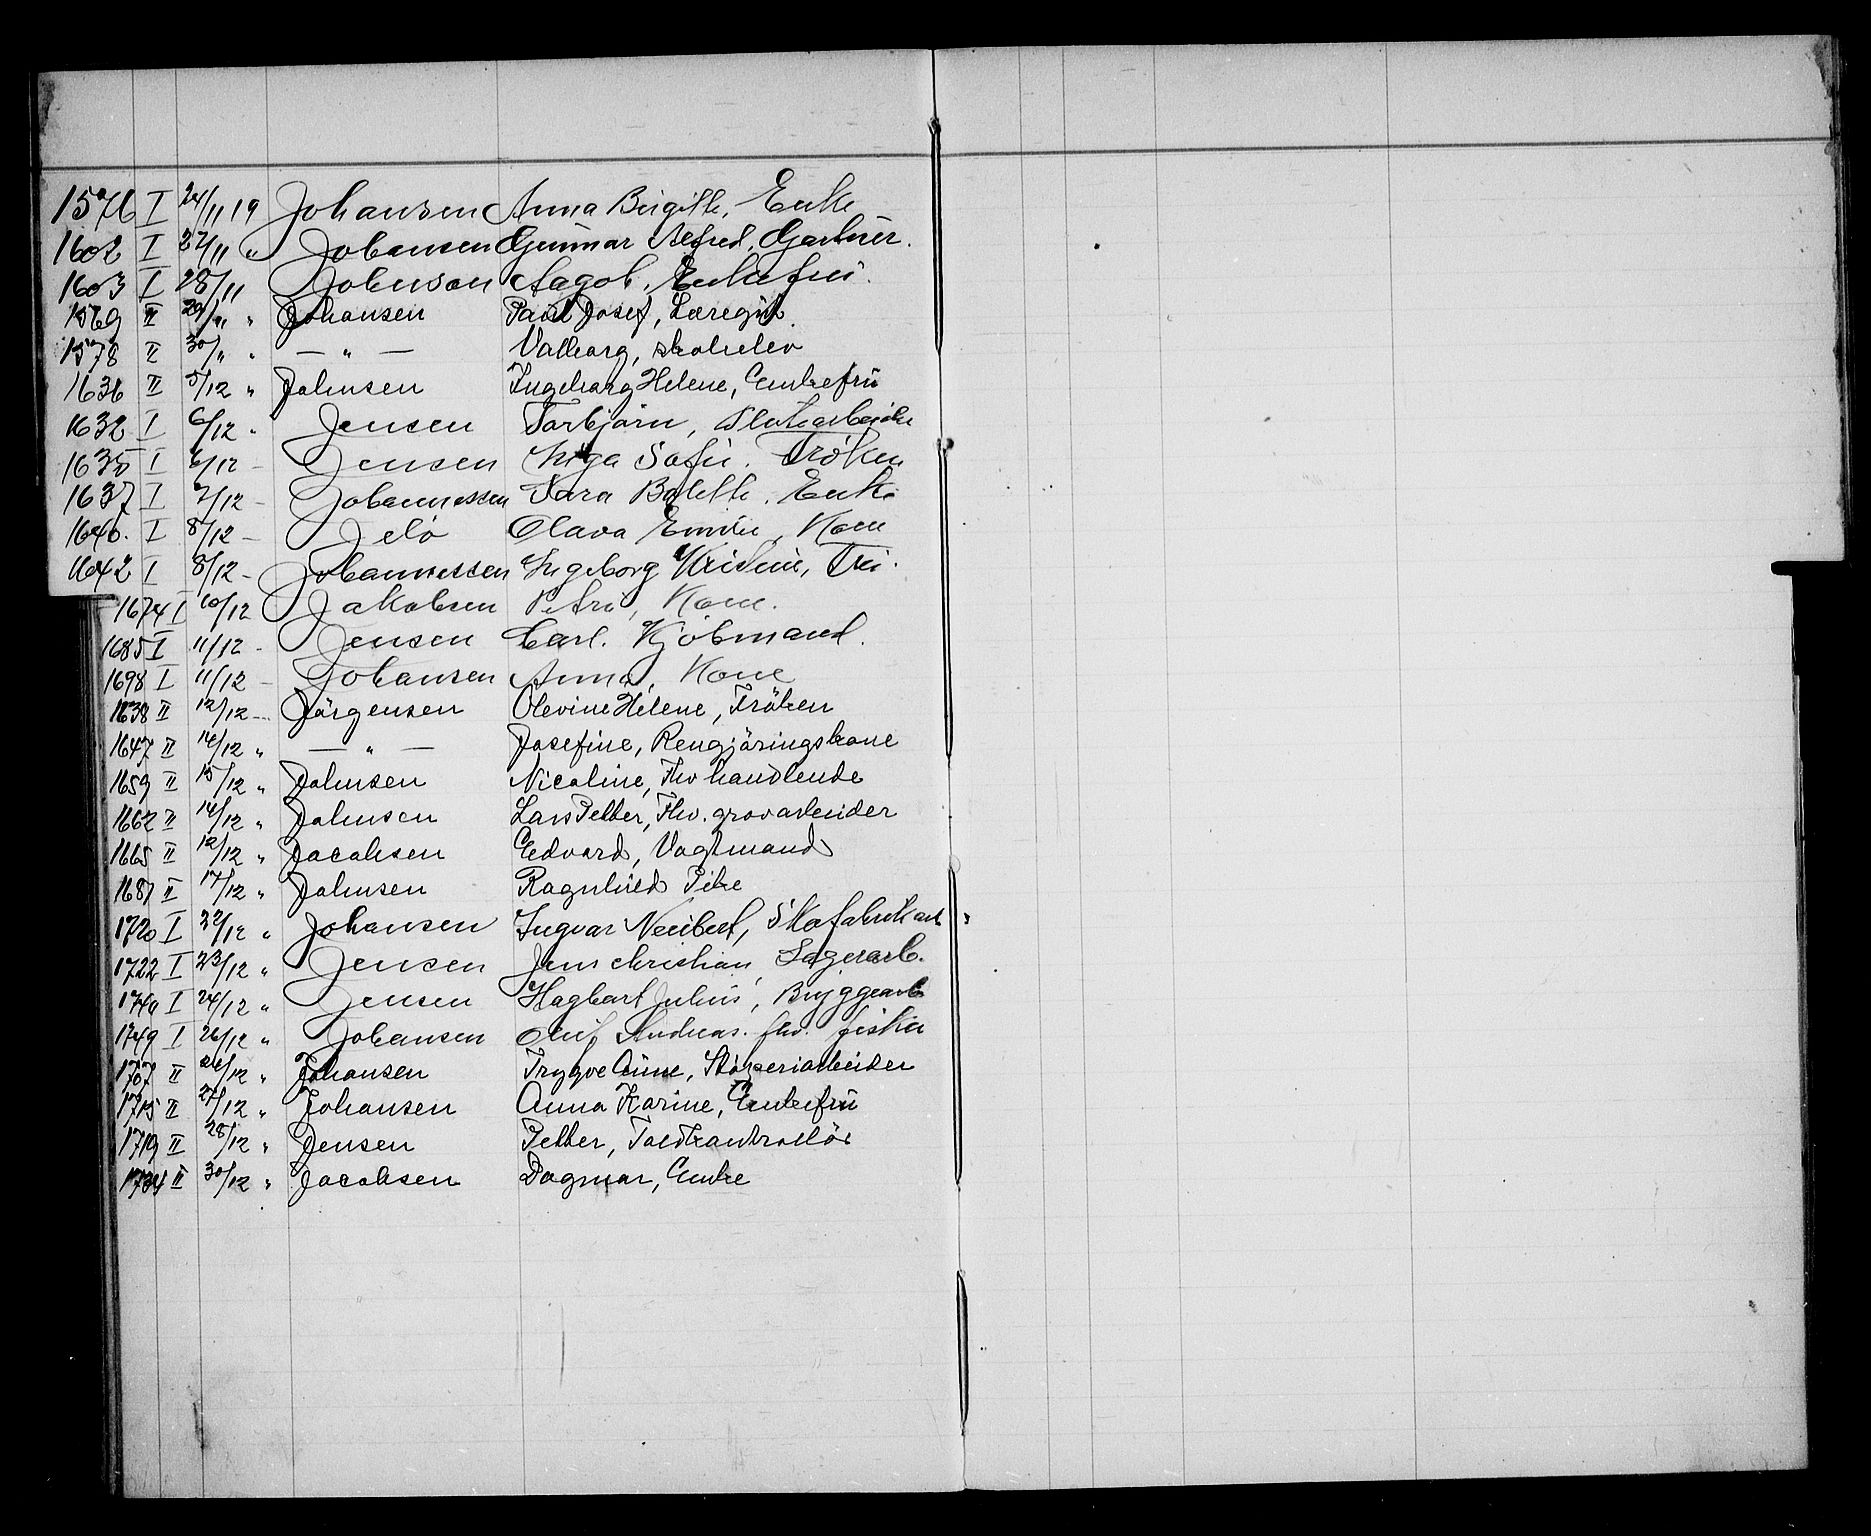 1576 I 24/11 19 Johansen Anna Birgitte, Enke
1602 I 27/11 " Johansen Gunnar Alfred, Gartner.
1603 I 28/11 Johnson Aagot, Enkefru.
1569 II 29/11 " Johansen Paul Josef, Læregut
1578 II 30/11 " — " — Valborg, skoleelev
1636 II 5/12 " Johnsen Ingeborg Helene, Enkefru
1632 I 6/12 " Jensen Torbjørn,
1635 I 6/12 - Jensen Inga Sofie. Frøken
1637 I 7/12 - Johannessen Sara Bolette, Enke
1640. I 8/12 - Jelø Olava Emilie, Kone
1642 I 8/12 - Johannessen Ingeborg Kristine, Fru.
1674 I 10/12 Jakobsen Petra, Kone.
1685 I 11/12 - Jensen Carl. Kjøbmand.
1698 I 11/12 - Johansen Anna, Kone
1638 II 12/12 - Jörgensen Olevine Helene, Fröken
1647 II 14/12 " — " — Josefine, Rengjöringskone
1659 II 15/12 " Johnsen Nicoline, Fhv handlende
1662 II 14/12 " Johnsen Lars Petter, Fhv. grovarbeider
1665 II 12/12 " Jacobsen Edvard, Vagtmand
1687 II 17/12 " Johnsen Ragnhild Pike
1720 I 22/12 " Johansen Ingvar Neubert, Skofabrikant
1722 I 23/12 " Jensen Jens Christian, Lagerarb.
1740 I 24/12 " Jensen Hagbart Julius, Bryggearb
1749 I 26/12 " Johansen Andreas. fhv. fisker
1707 II 26/12 " Johansen Trygve Arne, Støperiarbeider
1715 II 27/12 " Johansen Anna Karine, Enkefru
1719 II 28/12 " Jensen Petter, Toldkontrollör
1734 II 30/12 " Jacobsen Dagmar, Enke